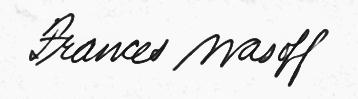 Frances Wasoff